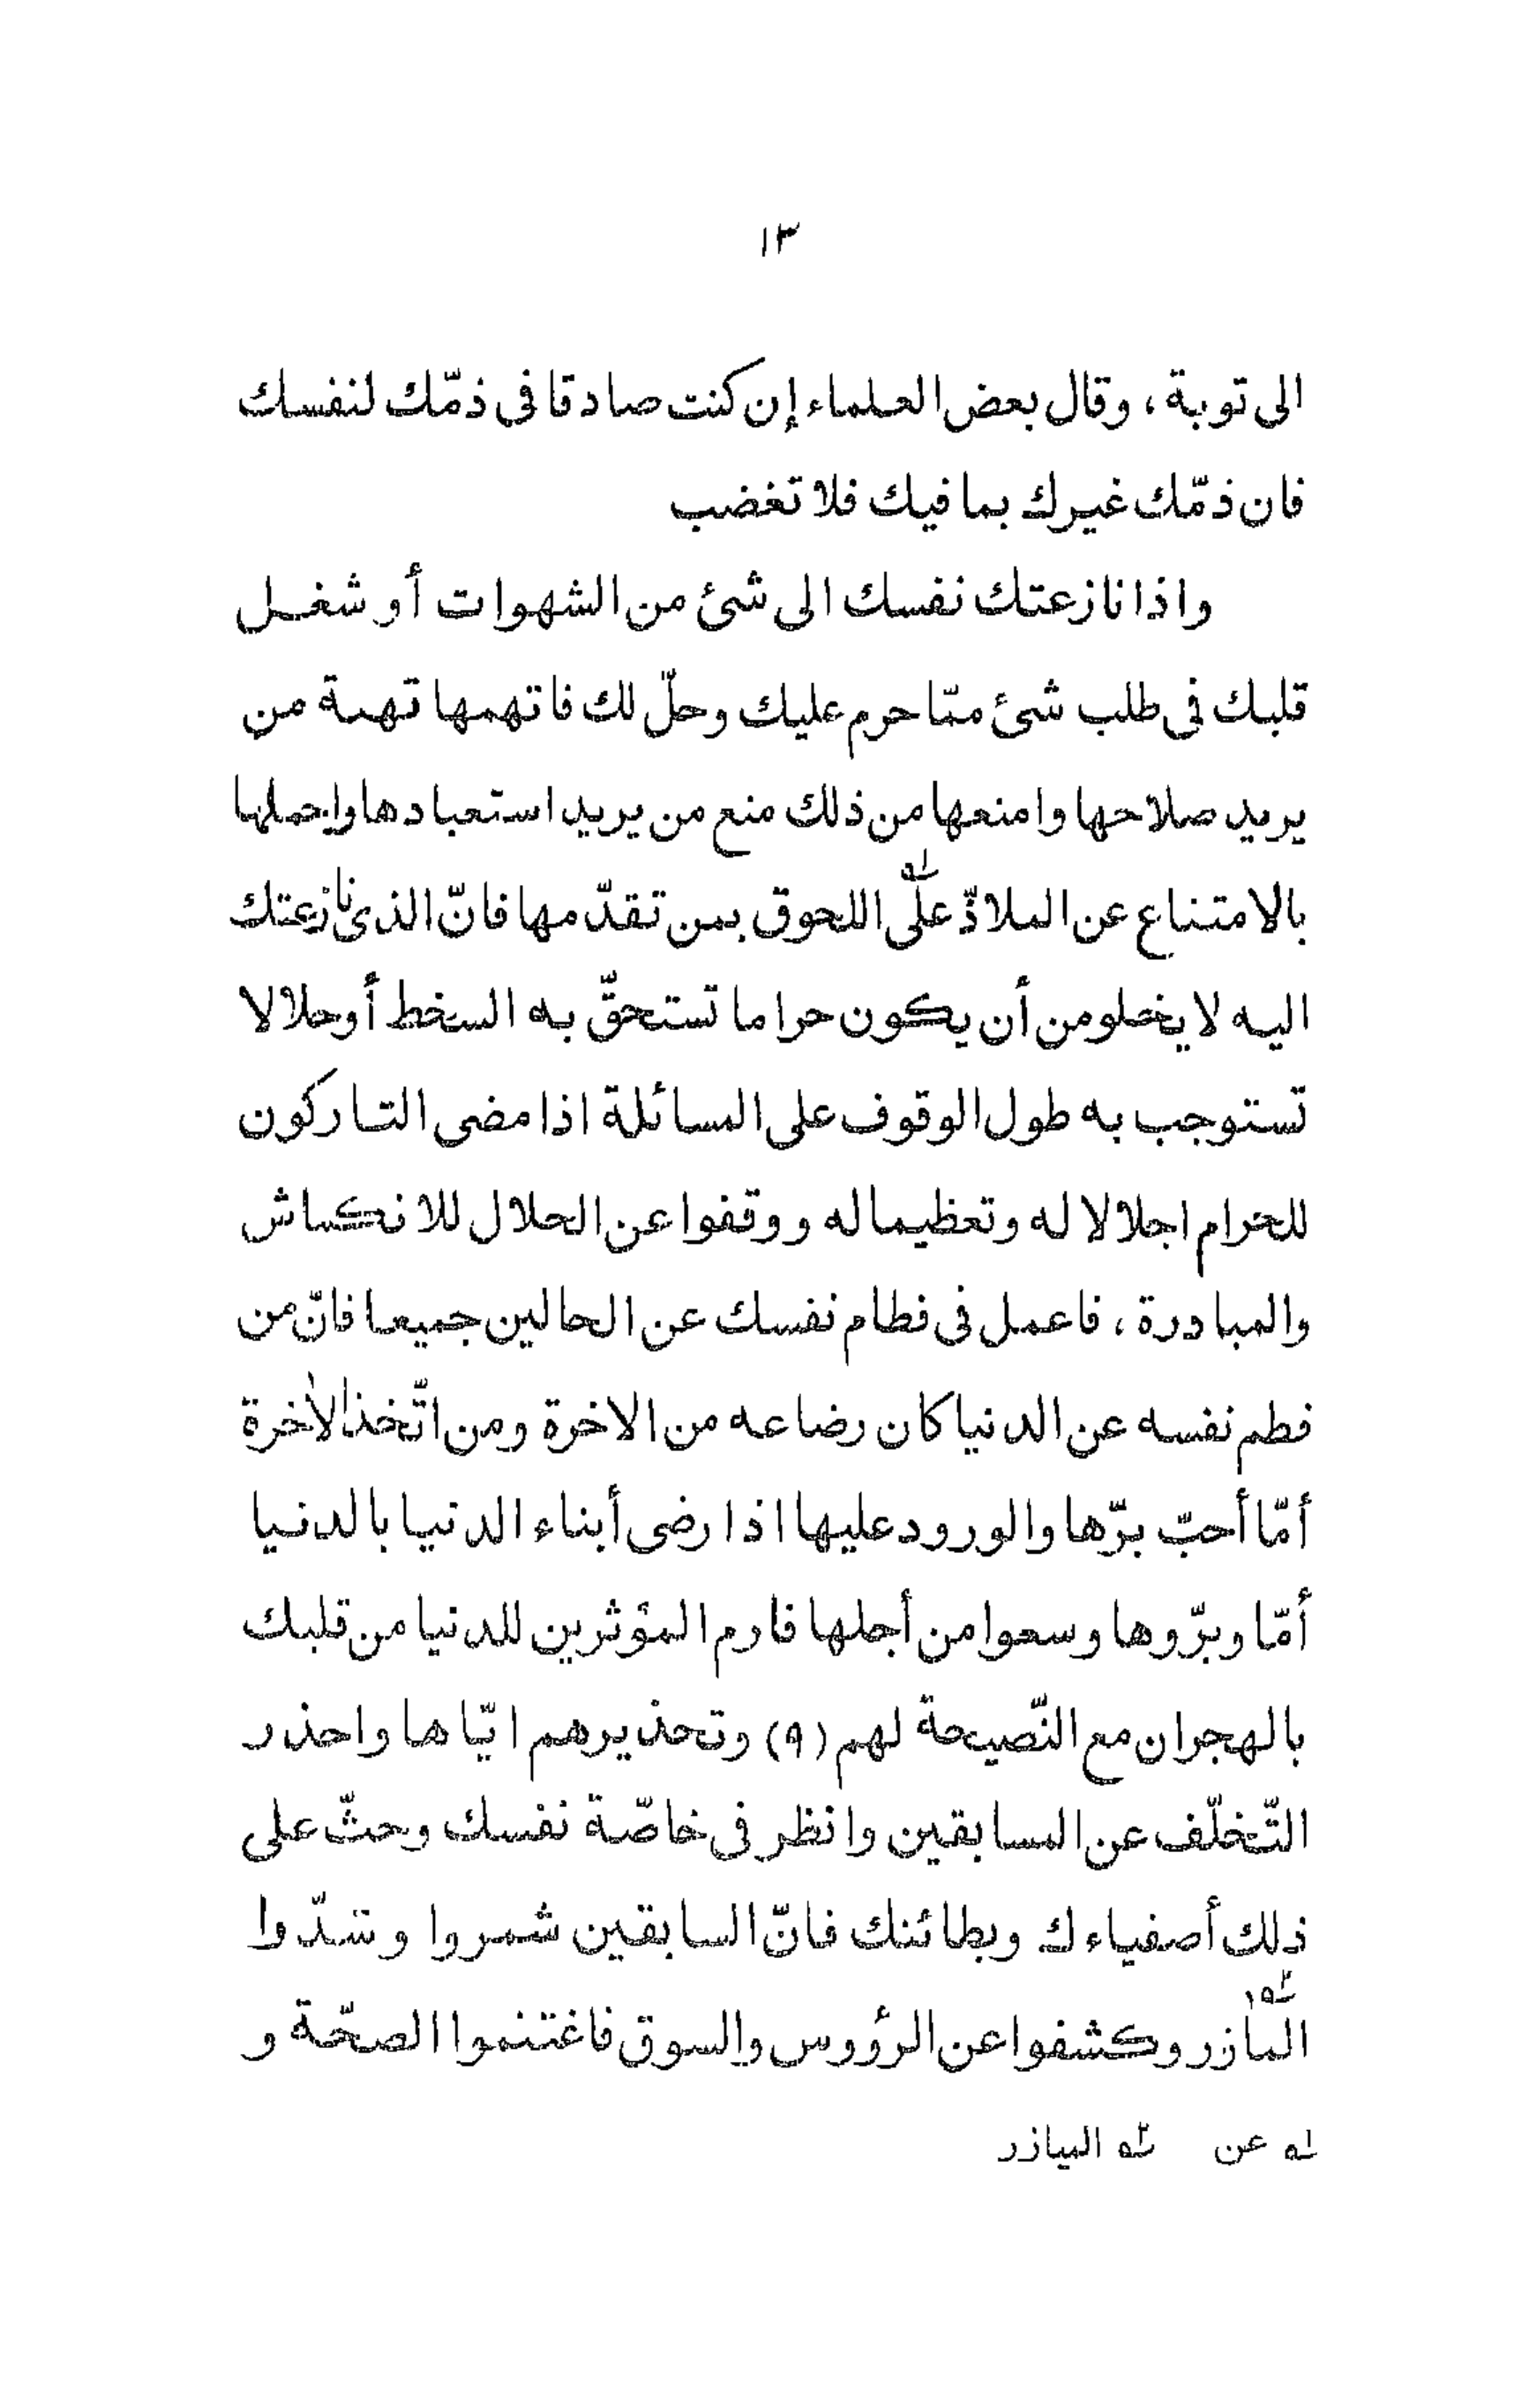 ١٣
الى توبة ، وقال بعض العلماء إن كنت صادقا فى ذمّك لنفسك
فان ذمّك غيرك بما فيك فلا تغضب
واذا نازعتك نفسك الى شئ من الشهوات أو شغل
قلبك فى طلب شئ ممّا حرم عليك وحلّ لك فاتهمها تهمة من
يريد صلاحها وامنعها من ذلك منع من يريد استعبادها واحملها
بالامتناع عن الملاذّ على اللحوق بمن تقدّمها فانّ الذى نازعتك
اليه لا يخلو من أن يكون حراما تستحقّ به السخط أو حلالا
تستوجب به طول الوقوف على المسائلة اذا مضى التاركون
للحرام اجلالا له وتعظيما له ووقفوا عن الحلال للانكماش
والمبادرة ، فاعمل فى فطام نفسك عن الحالين جميعا فانّ من
فطم نفسه عن الدنيا كان رضاعه من الاخرة ومن اتّخذ الاخرة
أمّا أحبّ برّها والورود عليها اذا رضى أبناء الدنيا بالدنيا
أمّا وبرّوها وسعوا من أجلها فارم المؤثرين للدنيا من قلبك
بالهجران مع النّصيحة لهم (٩) وتحذيرهم ايّاها واحذر
التّخلّف عن السابقين وانظر فى خاصّة نفسك وحثّ على
ذلك أصفياءك وبطائنك فانّ السابقين شمروا وشدّوا
المازر وكشفوا عن الرؤوس والسوق فاغتنموا الصحّة و
له عن ٢ه الميازر